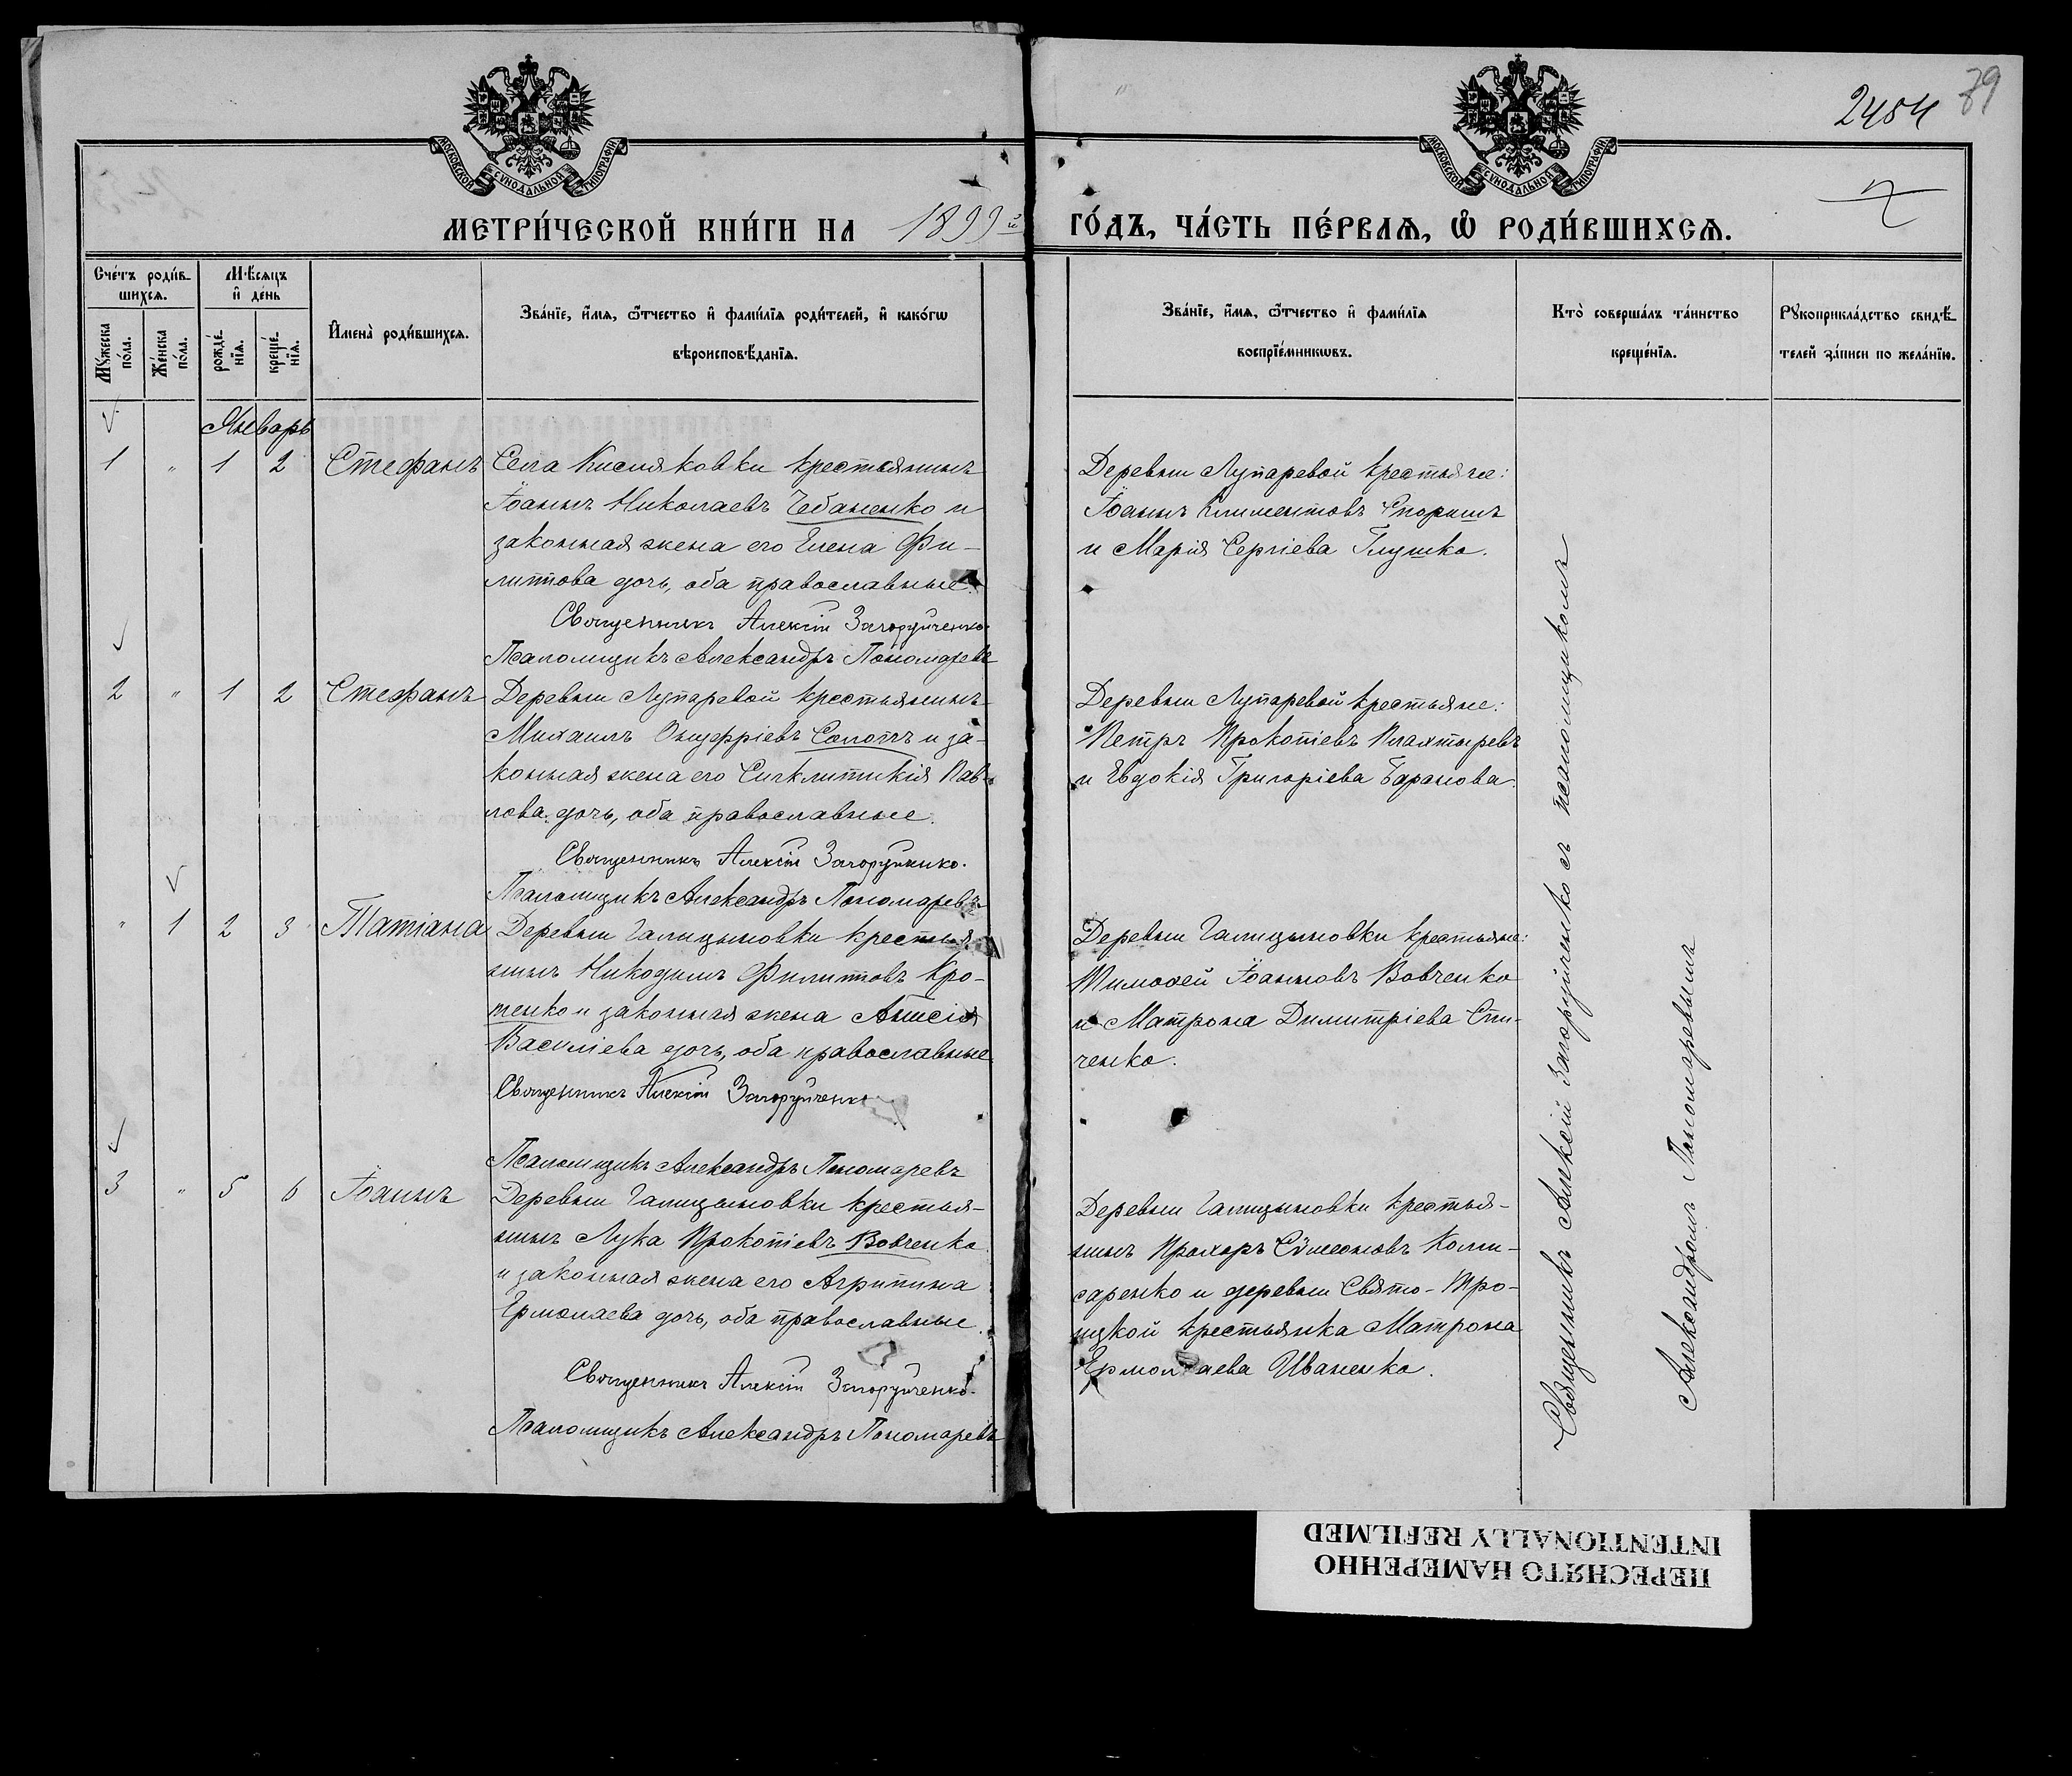 2484
79
МОСКОВСКОЙ СѴНОДАЛЬНОЙ ТИПОГРАФІИ
МОСКОВСКОЙ СѴНОДАЛЬНОЙ ТИПОГРАФІИ
МЕТРИ́ЧЕСКОЙ КНИ́ГИ НА 1899й ГО́ДЪ, ЧА́СТЬ ПЕ́РВАѦ, Ѽ РОДИ́ВШИХСѦ.
Сче́тъ роди́в-
шихсѧ.
Мꙋ́жеска по́ла.
Же́нска по́ла.
Мѣ́сѧцъ
и҆ де́нь
рожде́-
нїѧ.
креще́-
нїѧ.
И҆мена̀ роди́вшихсѧ.
Зва́нїе, и҆́мѧ, ѻ҆́тчество и҆ фами́лїѧ роди́телей, и҆ како́гѡ
вѣроисповѣ́данїѧ.
Зва́нїе, и҆́мѧ, ѻ҆́тчество и҆ фами́лїѧ
воспрїе́мникѡвъ.
Кто̀ соверша́лъ та́инство
креще́нїѧ.
Рꙋкоприкла́дство свидѣ́-
телей за́писи по жела́нїю.
Январь
1 " 1 2 Стефанъ
Села Кисляковки крестьянинъ
Іоаннъ Николаевъ Чебаненко и
законная жена его Елена Фи-
липпова дочь, оба православные.
Священникъ Алексій Загоруйченко.
Псаломщикъ Александръ Пономаревъ
Деревни Лупаревой крестьяне:
Іоаннъ Климентовъ Споришъ
и Марія Сергіева Глушко.
2 " 1 2 Стефанъ
Деревни Лупаревой крестьянинъ
Михаилъ Онуфріевъ Солопъ и за-
конная жена его Сигклитикія Пав-
лова дочь, оба православные.
Священникъ Алексій Загоруйченко.
Псаломщикъ Александръ Пономаревъ
Деревни Лупаревой крестьяне:
Петръ Прокопіевъ Плахтыревъ
и Евдокія Григоріева Баранова.
" 1 2 3 Татіана
Деревни Галицыновки крестья-
нинъ Никодимъ Филипповъ Кро-
тенко и законная жена Анисія
Василіева дочь, оба православные
Священникъ Алексій Загоруйченко
Псаломщикъ Александръ Пономаревъ
Деревни Галицыновки крестьяне:
Тимоѳей Іоанновъ Вовченко
и Матрона Димитріева Спи-
ченко.
3 " 5 6 Іоаннъ
Деревни Галицыновки крестья-
нинъ Лука Прокопіевъ Вовченко
и законная жена его Агрипина
Ермолаева дочь, оба православные.
Священникъ Алексій Загоруйченко.
Псаломщикъ Александръ Пономаревъ
Деревни Галицыновки крестья-
нинъ Прохоръ Сѵмеоновъ Коми-
саренко и деревни Свято-Тро-
ицкой крестьянка Матрона
Ермолаева Иваненко.
Священникъ Алексій Загоруйченко съ псаломщикомъ
Александромъ Пономаревымъ
ПЕРЕСНЯТО НАМЕРЕННО
INTENTIONALLY REFILMED